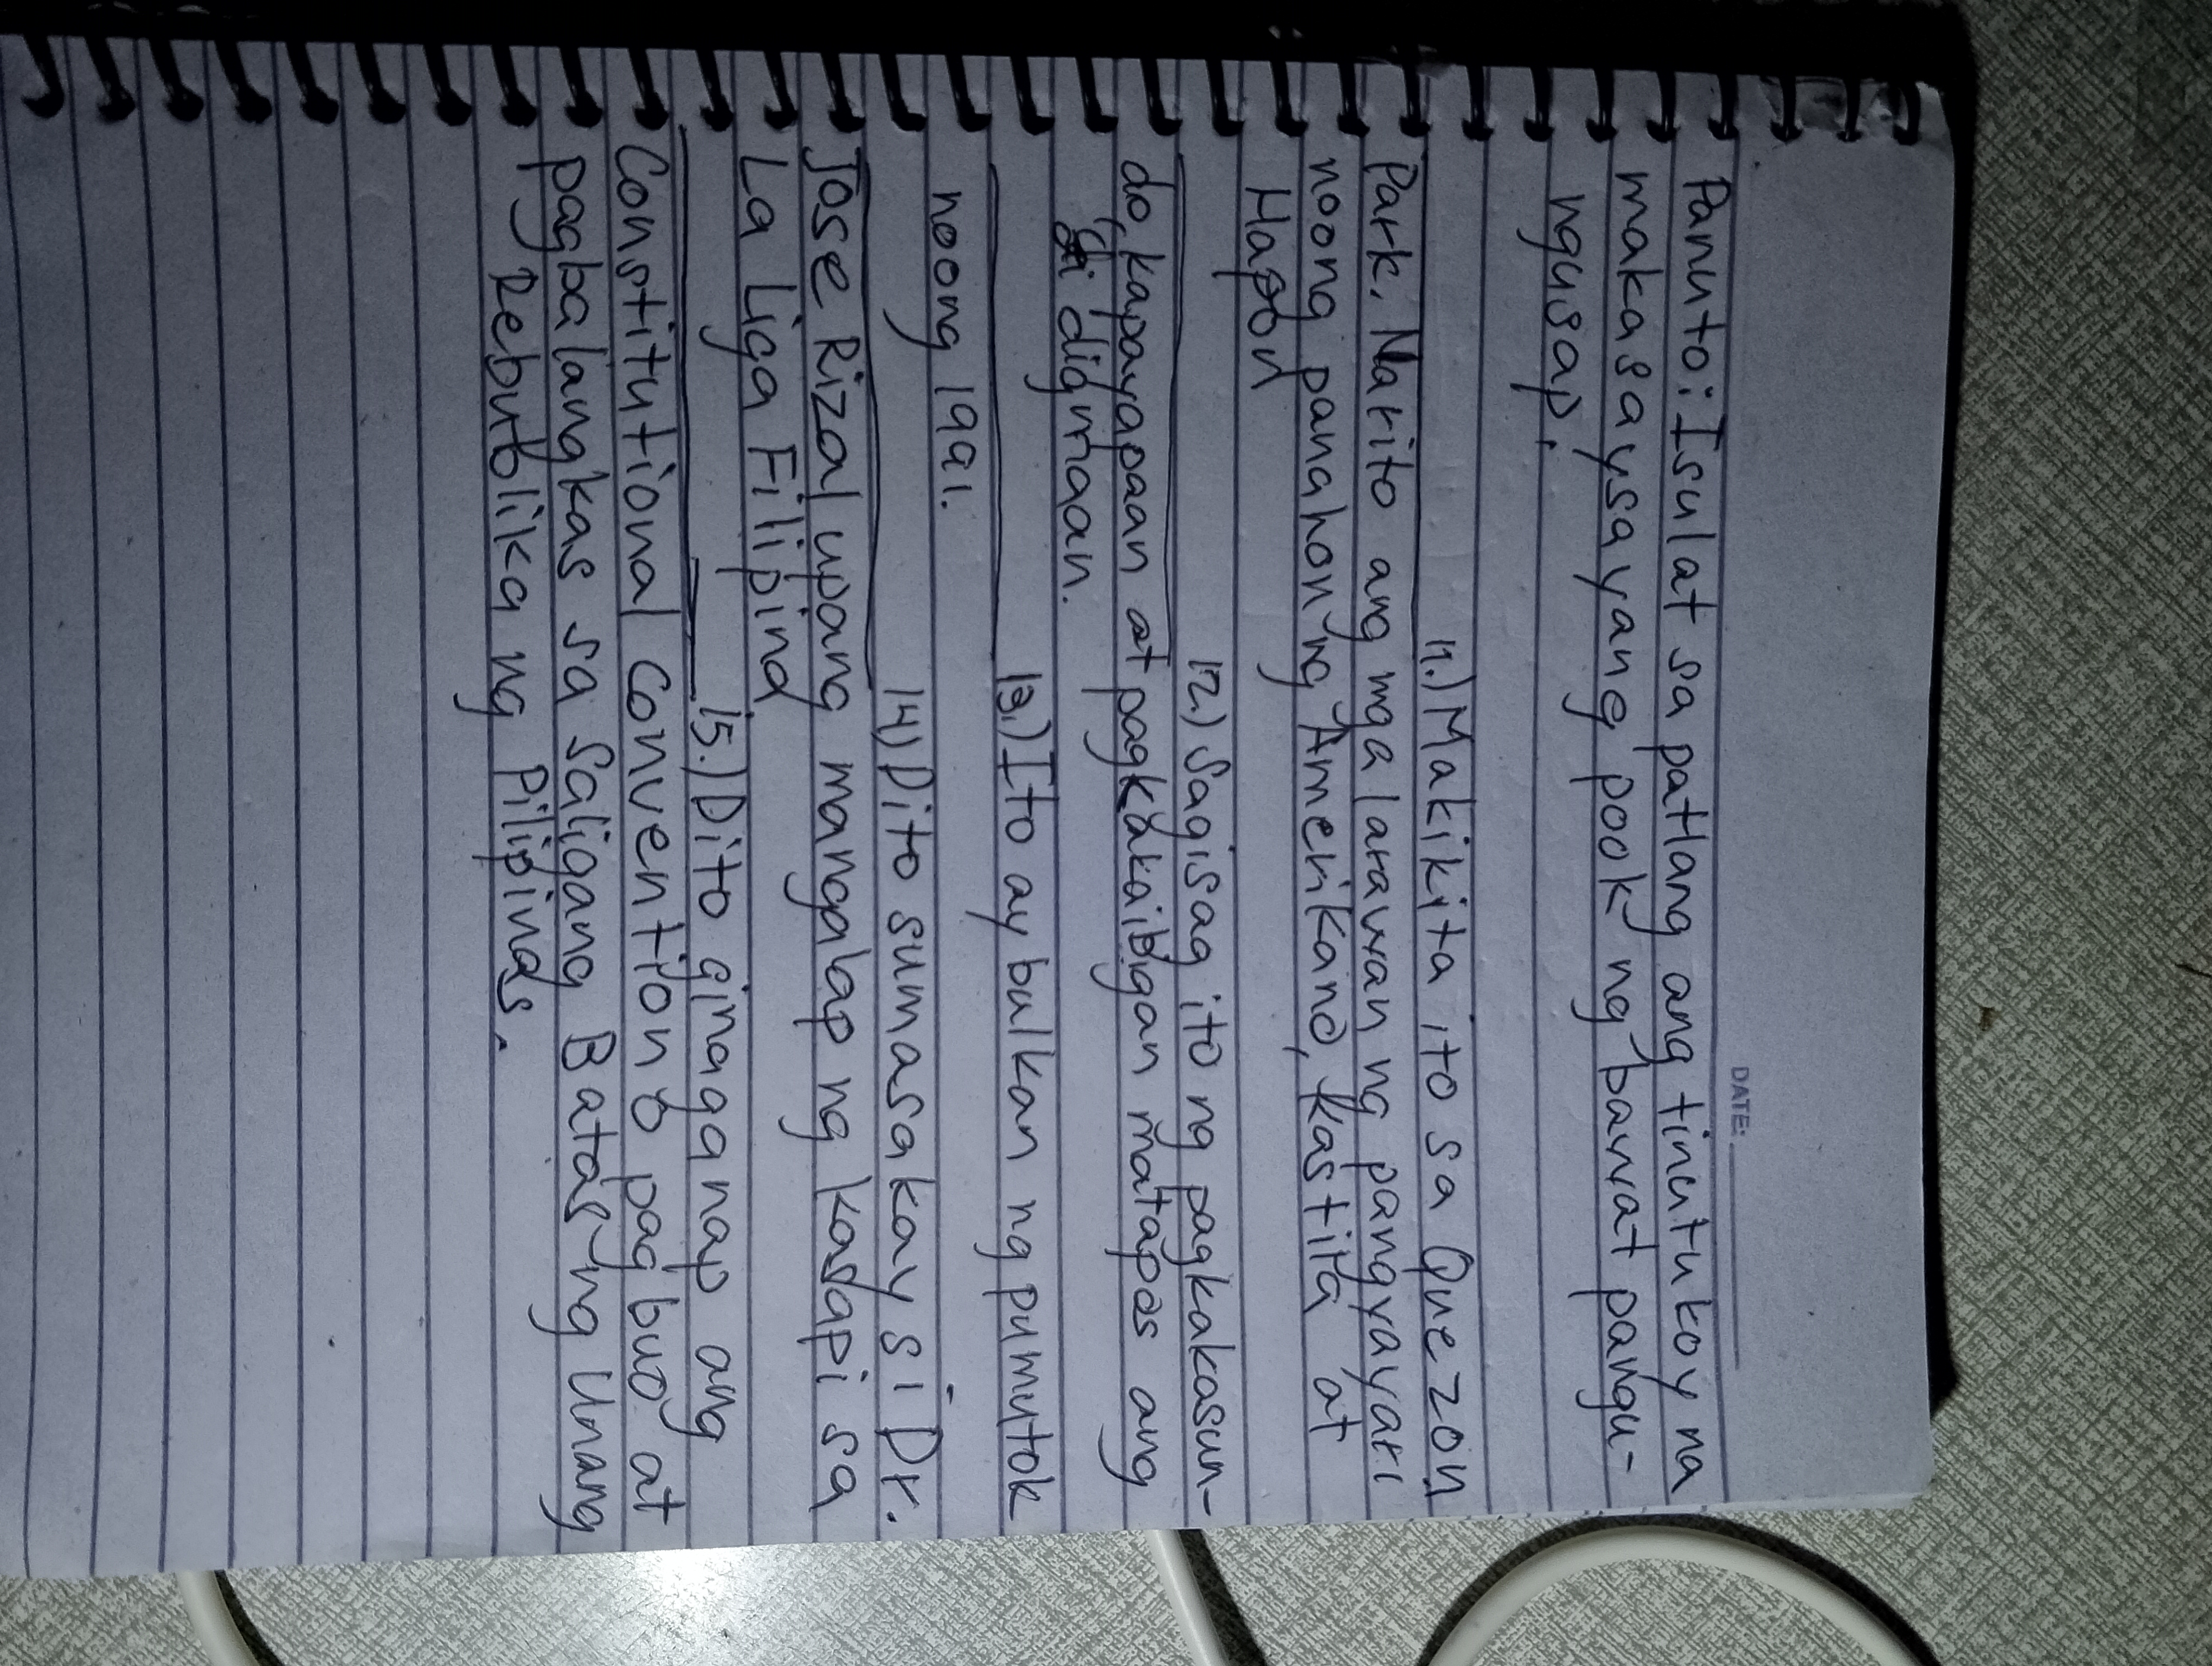 DATE:
Panuto: Isulat sa patlang ang tinutukoy na
makasaysayang pook ng bawat pangu-
ngusap.
11.) Makikita ito sa Quezon
Park. Narito ang mga larawan ng pangyayari
noong panahon ng Amerikano, Kastila at
Hapon
12.) Sagisag ito ng pagkakasun-
do, kapayapaan at pagkakaibigan matapos ang
di digmaan.
13.) Ito ay bulkan ng pumutok
noong 1991.
14.) Dito sumasakay si Dr.
Jose Rizal upang mangalap ng kasapi sa
La Liga Filipina
15.) Dito ginaganap ang
Constitutional Convention o pagbuo at
pagbalangkas sa Saligang Batas ng Unang
Rebublika ng Pilipinas.